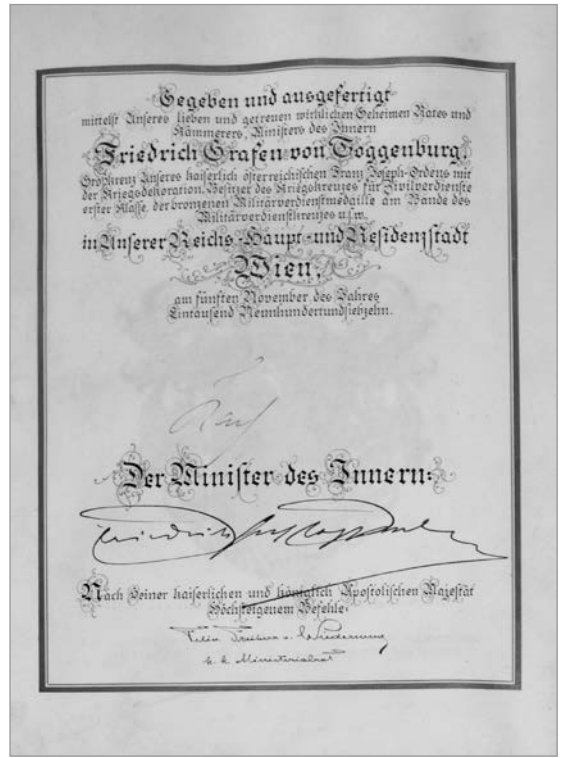 Gegeben und ausgefertigt
mittelst Unseres lieben und getreuen wirklichen Geheimen Rates und
Kämmerers, Ministers des Innern
Friedrich Grafen von Toggenburg,
Großkreuz Unseres kaiserlich österreichischen Franz Joseph-Ordens mit
der Kriegsdekoration, Besitzer des Kriegskreuzes für Zivilverdienste
erster Klasse, der bronzenen Militärverdienstmedaille am Bande des
Militärverdienstkreuzes u.s.w.
in Unserer Reichs-Haupt-und Residenzstadt
Wien,
am fünften November des Jahres
Eintausend Neunhundertundsiebzehn.
Karl
Der Minister des Innern:
Friedrich Graf Toggenburg
Nach Seiner kaiserlichen und königlich Apostolischen Majestät
Höchsteigenem Befehle:
k. k. Ministerialrat